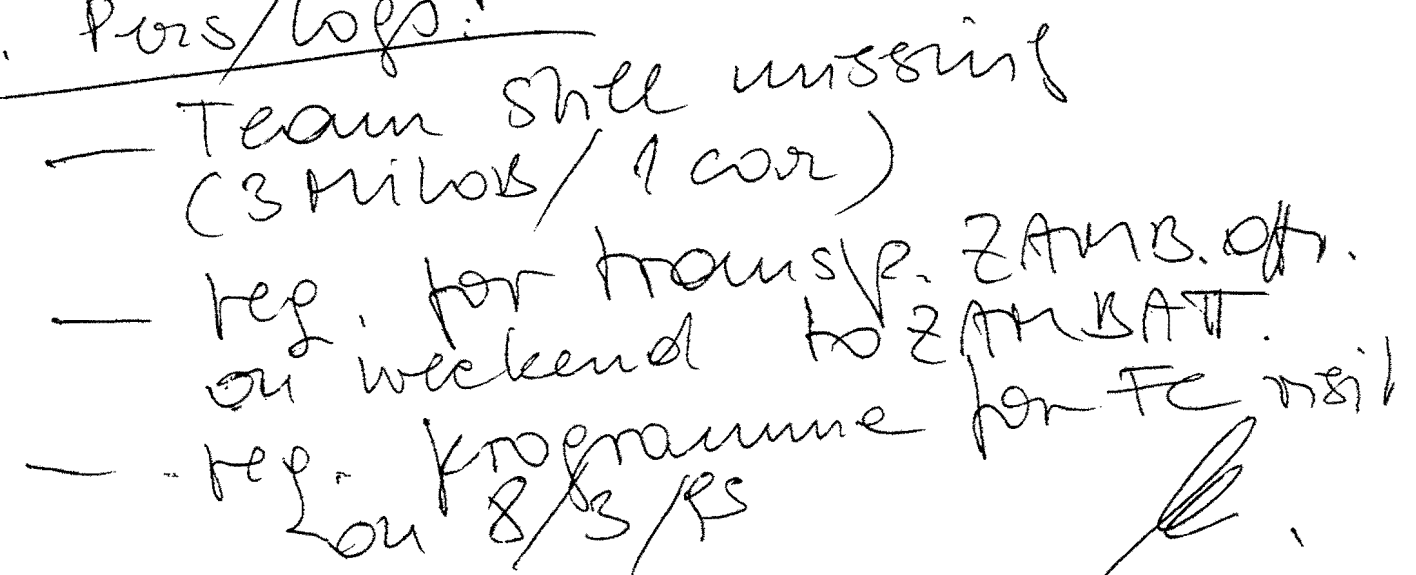 . Pers/Logs:
— Team still missing
(3 MilOB / 1 car)
— req. for transp. ZAMB. offr.
on weekend to ZAMBATT.
— req. programme for FC visit
on 8/3/95